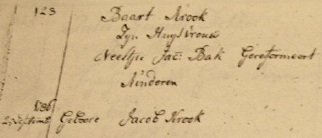 1 123 Baart Krook
Zyn Huysvrouw
Neeltje Jac: Bak Gereformeert
Kinderen
Geboore Jacob Krook